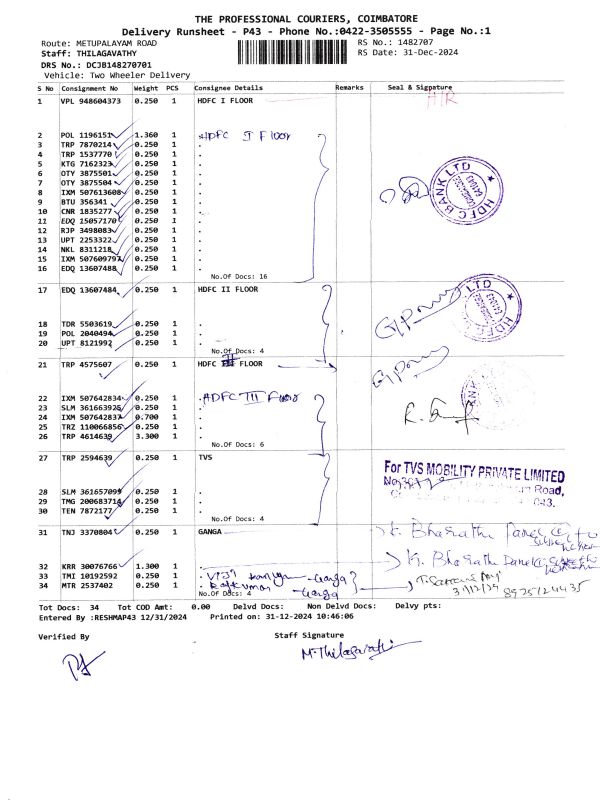 THE PROFESSIONAL COURIERS, COIMBATORE
Delivery Runsheet - P43 - Phone No.:0422-3505555 - Page No.:1
Route: METUPALAYAM ROAD RS No.: 1482707
Staff: THILAGAVATHY RS Date: 31-Dec-2024
DRS No.: DCJB148270701
Vehicle: Two Wheeler Delivery
S No Consignment No Weight PCS Consignee Details Remarks Seal & Signature
1 VPL 948604373 0.250 1 HDFC I FLOOR
2 POL 1196151 1.360 1 . HDFC I Floor
3 TRP 7870214 0.250 1 .
4 TRP 1537770 0.250 1 .
5 KTG 7162323 0.250 1 .
6 OTY 3875501 0.250 1 .
7 OTY 3875504 0.250 1 .
8 IXM 507613608 0.250 1 .
9 BTU 356341 0.250 1 .
10 CNR 1835277 0.250 1 .
11 EDQ 15057170 0.250 1 .
12 RJP 3498083 0.250 1 .
13 UPT 2253322 0.250 1 .
14 NKL 8311218 0.250 1 .
15 IXM 507609797 0.250 1 .
16 EDQ 13607488 0.250 1 .
HDFC BANK LTD
COIMBATORE
641043
No.Of Docs: 16
17 EDQ 13607484 0.250 1 HDFC II FLOOR
18 TDR 5503619 0.250 1 .
19 POL 2040494 0.250 1 .
20 UPT 8121992 0.250 1 .
No.Of Docs: 4
21 TRP 4575607 0.250 1 HDFC III FLOOR
22 IXM 507642834 0.250 1 . HDFC III Floor
23 SLM 361663925 0.250 1 .
24 IXM 507642837 0.700 1 .
25 TRZ 110066856 0.250 1 .
26 TRP 4614639 3.300 1 .
No.Of Docs: 6
27 TRP 2594639 0.250 1 TVS
For TVS MOBILITY PRIVATE LIMITED
Road,
28 SLM 361657099 0.250 1 .
29 TMG 200683714 0.250 1 .
30 TEN 7872177 0.250 1 .
No.Of Docs: 4
31 TNJ 3370804 0.250 1 GANGA
32 KRR 30076766 1.300 1 .
33 TMI 10192592 0.250 1 .
34 MTR 2537402 0.250 1 .
No.Of Docs: 4
Tot Docs: 34 Tot COD Amt: 0.00 Delvd Docs: Non Delvd Docs: Delvy pts:
Entered By :RESHMAP43 12/31/2024 Printed on: 31-12-2024 10:46:06
Verified By Staff Signature
M. Thilagavathi